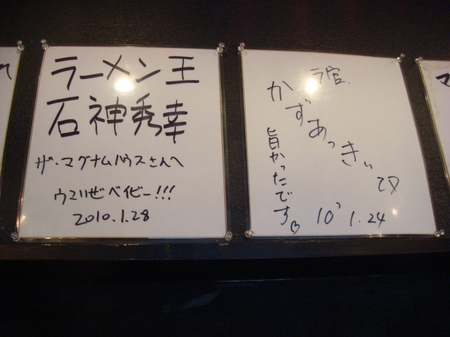 ラーメン王
石神秀幸
ザ・マグナムハウスさんへ
ウマいぜベイビー!!!
2010.1.28
かずあっきぃ
旨かったです。
10' 1.24
れ
マ